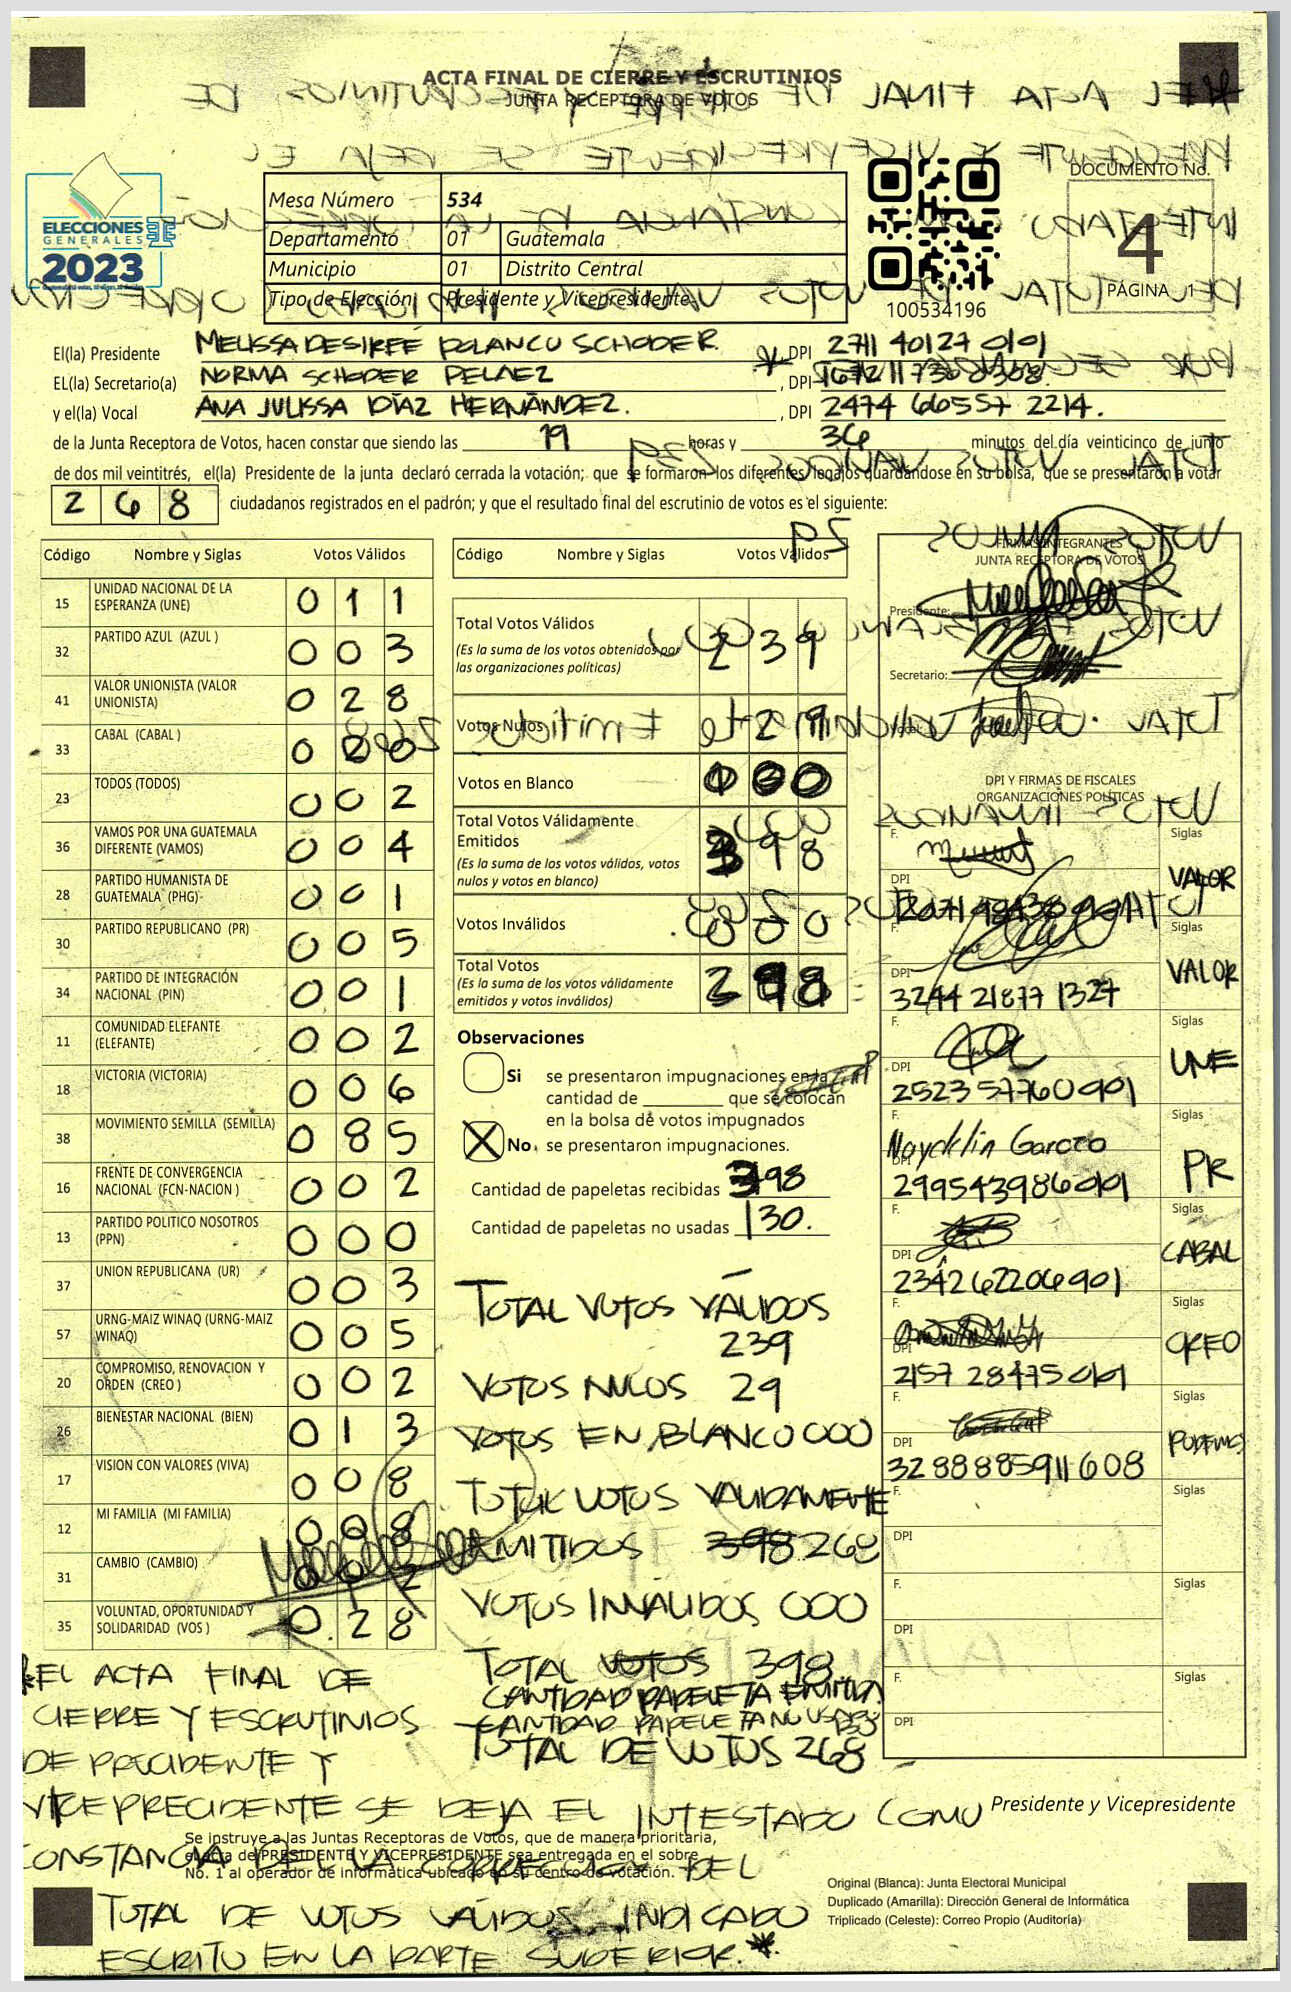 ACTA FINAL DE CIERRE Y ESCRUTINIOS
JUNTA RECEPTORA DE VOTOS
ELECCIONES
GENERALES
2023
Mesa Número 534
Departamento 01 Guatemala
Municipio 01 Distrito Central
Tipo de Elección Presidente y Vicepresidente
100534196
DOCUMENTO No.
4
PÁGINA 1
El(la) Presidente MELISSA DESIREÉ POLANCO SCHODER , DPI 2711 40127 0101
EL(la) Secretario(a) NORMA SCHODER PELAEZ , DPI
y el(la) Vocal ANA JULISSA DÍAZ HERNÁNDEZ. , DPI 2474 66557 2214.
de la Junta Receptora de Votos, hacen constar que siendo las 19 horas y 36 minutos del día veinticinco de junio
de dos mil veintitrés, el(la) Presidente de la junta declaró cerrada la votación; que se formaron los diferentes legajos guardándose en su bolsa, que se presentaron a votar
268 ciudadanos registrados en el padrón; y que el resultado final del escrutinio de votos es el siguiente:
Código Nombre y Siglas Votos Válidos
15 UNIDAD NACIONAL DE LA ESPERANZA (UNE) 0 1 1
32 PARTIDO AZUL (AZUL ) 0 0 3
41 VALOR UNIONISTA (VALOR UNIONISTA) 0 2 8
33 CABAL (CABAL ) 0 2 0
23 TODOS (TODOS) 0 0 2
36 VAMOS POR UNA GUATEMALA DIFERENTE (VAMOS) 0 0 4
28 PARTIDO HUMANISTA DE GUATEMALA (PHG) 0 0 1
30 PARTIDO REPUBLICANO (PR) 0 0 5
34 PARTIDO DE INTEGRACIÓN NACIONAL (PIN) 0 0 1
11 COMUNIDAD ELEFANTE (ELEFANTE) 0 0 2
18 VICTORIA (VICTORIA) 0 0 6
38 MOVIMIENTO SEMILLA (SEMILLA) 0 8 5
16 FRENTE DE CONVERGENCIA NACIONAL (FCN-NACION ) 0 0 2
13 PARTIDO POLITICO NOSOTROS (PPN) 0 0 0
37 UNION REPUBLICANA (UR) 0 0 3
57 URNG-MAIZ WINAQ (URNG-MAIZ WINAQ) 0 0 5
20 COMPROMISO, RENOVACION Y ORDEN (CREO ) 0 0 2
26 BIENESTAR NACIONAL (BIEN) 0 1 3
17 VISION CON VALORES (VIVA) 0 0 8
12 MI FAMILIA (MI FAMILIA) 0 0 8
31 CAMBIO (CAMBIO) 0 0 2
35 VOLUNTAD, OPORTUNIDAD Y SOLIDARIDAD (VOS ) 0 2 8
Código Nombre y Siglas Votos Válidos
Total Votos Válidos 2 3 9
(Es la suma de los votos obtenidos por
las organizaciones políticas)
Votos Nulos 2 9
Votos en Blanco 0 0 0
Total Votos Válidamente
Emitidos 3 9 8
(Es la suma de los votos válidos, votos
nulos y votos en blanco)
Votos Inválidos 0 0 0
Total Votos
(Es la suma de los votos válidamente
emitidos y votos inválidos)
Observaciones
Si se presentaron impugnaciones en la
cantidad de ________ que se colocan
en la bolsa de votos impugnados
X No se presentaron impugnaciones.
Cantidad de papeletas recibidas 398
Cantidad de papeletas no usadas 130.
TOTAL VOTOS VÁLIDOS
239
VOTOS NULOS 29
VOTOS EN BLANCO 000
TOTAL VOTOS VALIDAMENTE
EMITIDOS 398 268
VOTOS INVALIDOS 000
TOTAL VOTOS 398
CANTIDAD PAPELETA EMITIDA
CANTIDAD PAPELETA NO USADA 130
TOTAL DE VOTOS 268
FIRMAS INTEGRANTES
JUNTA RECEPTORA DE VOTOS
Presidente:
Secretario:
Vocal:
DPI Y FIRMAS DE FISCALES
ORGANIZACIONES POLÍTICAS
F. Siglas VALOR
DPI
F. Siglas VALOR
DPI 3244 21877 1327
F. Siglas UNE
DPI 2523577600901
F. Nayeklin Garcia Siglas PR
DPI 2995439860101
F. Siglas CABAL
DPI 2342622060901
F. Siglas CREO
DPI 2157 28475 0101
F. Siglas PODEMOS
DPI 3288885911608
F. Siglas
DPI
F. Siglas
DPI
F. Siglas
DPI
*EL ACTA FINAL DE
CIERRE Y ESCRUTINIOS
DE PRECIDENTE Y
VICEPRECIDENTE SE DEJA EL INTESTADO COMO
CONSTANCIA DE LA CORRECCION DEL
TOTAL DE VOTOS VALIDOS INDICADO
ESCRITO EN LA PARTE SUPERIOR.*
Presidente y Vicepresidente
Se instruye a las Juntas Receptoras de Votos, que de manera prioritaria,
el acta de PRESIDENTE Y VICEPRESIDENTE sea entregada en el sobre
No. 1 al operador de informática ubicado en su centro de votación.
Original (Blanca): Junta Electoral Municipal
Duplicado (Amarilla): Dirección General de Informática
Triplicado (Celeste): Correo Propio (Auditoría)